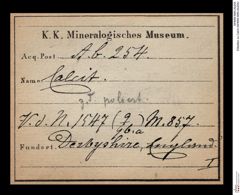 K.K. Mineralogisches Museum.
Acq. Post A.b. 254.
Name Calcit.
z.T. poliert.
V.d.N. 1547 (9/96.a) M. 857.
Fundort. Derbyshire, England.
I